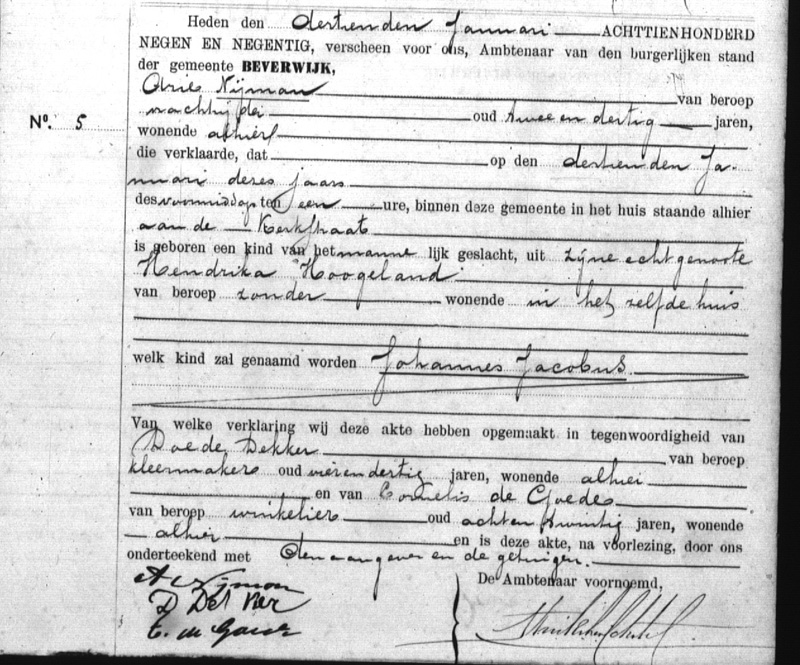 Heden den dertienden Januari ACHTTIENHONDERD
NEGEN EN NEGENTIG, verscheen voor ons, Ambtenaar van den burgerlijken stand
der gemeente BEVERWIJK,
Arie Nijman van beroep
oud twee en dertig jaren,
Nº. 5
wonende alhier
die verklaarde, dat op den dertienden Ja-
nuari dezes jaars
des voormiddags ten een ure, binnen deze gemeente in het huis staande alhier
aan de Kerkstraat
is geboren een kind van het manne lijk geslacht, uit zijne echtgenoote
Hendrika Hoogeland
van beroep zonder wonende in het zelfde huis
welk kind zal genaamd worden Johannes Jacobus
Van welke verklaring wij deze akte hebben opgemaakt in tegenwoordigheid van
Doede Dekker van beroep
kleermaker oud vierendertig jaren, wonende alhier
en van Cornelis de Goede
van beroep winkelier oud achtentwintig jaren, wonende
alhier en is deze akte, na voorlezing, door ons
onderteekend met den aangever en de getuigen.
De Ambtenaar voornoemd,
A Nijman
D Dekker
C. de Goede